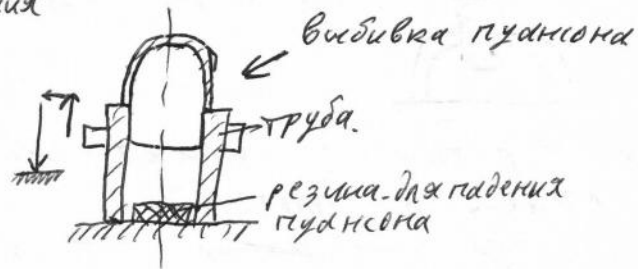 ния
выбивка пуансона
труба.
резина для падения
пуансона